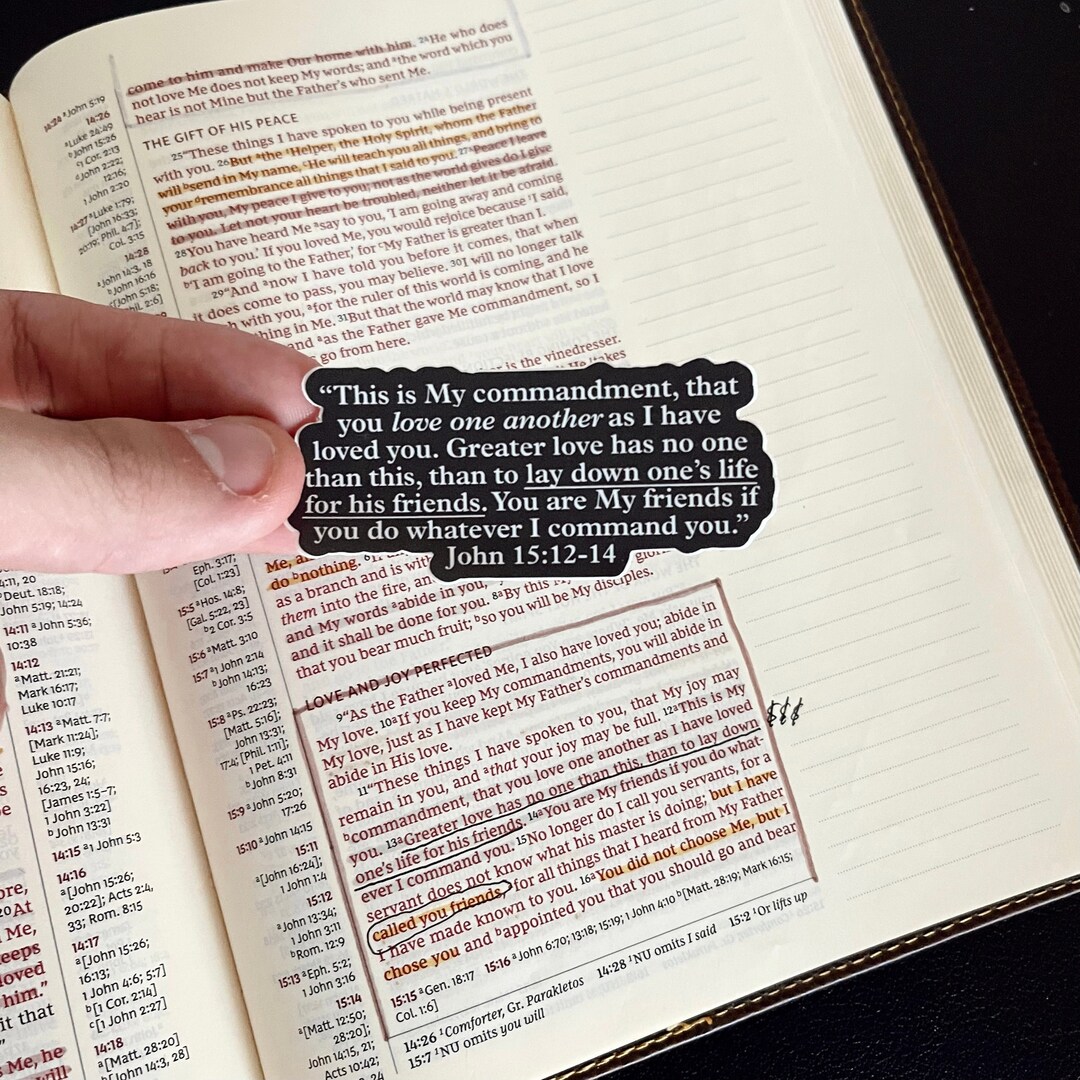 come to him and make Our home with him. ²⁴He who does
not love Me does not keep My words; and ᵃthe word which you
hear is not Mine but the Father's who sent Me.
THE GIFT OF HIS PEACE
²⁵"These things I have spoken to you while being present
with you. ²⁶But ᵃthe ¹Helper, the Holy Spirit, whom the Father
will ᵇsend in My name, ᶜHe will teach you all things, and bring to
your ᵈremembrance all things that I said to you. ²⁷ᵃPeace I leave
with you, My peace I give to you; not as the world gives do I give
to you. Let not your heart be troubled, neither let it be afraid.
²⁸You have heard Me ᵃsay to you, 'I am going away and coming
back to you.' If you loved Me, you would rejoice because ¹I said,
ᵇ'I am going to the Father,' for ᶜMy Father is greater than I.
²⁹"And ᵃnow I have told you before it comes, that when
it does come to pass, you may believe. ³⁰I will no longer talk
with you, ᵃfor the ruler of this world is coming, and he
in Me. ³¹But that the world may know that I love
and ᵃas the Father gave Me commandment, so I
go from here.
is the vinedresser.
14:24 ᵃJohn 5:19
14:26
ᵃLuke 24:49
ᵇJohn 15:26
ᶜ1 Cor. 2:13
ᵈJohn 2:22;
12:16;
1 John 2:20
14:27 ᵃLuke 1:79;
[John 16:33;
20:19; Phil. 4:7];
Col. 3:15
14:28
ᵃJohn 14:3, 18
ᵇJohn 16:16
ᶜ[John 5:18;
Phil. 2:6]
"This is My commandment, that
you love one another as I have
loved you. Greater love has no one
than this, than to lay down one's life
for his friends. You are My friends if
you do whatever I command you."
John 15:12-14
do ᵇnothing.
as a branch and is
them into the fire, an
and My words ᵃabide in you,
and it shall be done for you. ⁸ᵃBy this
that you bear much fruit; ᵇso you will be My disciples.
LOVE AND JOY PERFECTED
⁹"As the Father ᵃloved Me, I also have loved you; abide in
My love. ¹⁰ᵃIf you keep My commandments, you will abide in
My love, just as I have kept My Father's commandments and
abide in His love.
¹¹"These things I have spoken to you, that My joy may
remain in you, and ᵃthat your joy may be full. ¹²ᵃThis is My
ᵇcommandment, that you love one another as I have loved
you. ¹³ᵃGreater love has no one than this, than to lay down
one's life for his friends. ¹⁴ᵃYou are My friends if you do what-
ever I command you. ¹⁵No longer do I call you servants, for a
servant does not know what his master is doing; but I have
called you friends, ᵃfor all things that I heard from My Father
I have made known to you. ¹⁶ᵃYou did not choose Me, but I
chose you and ᵇappointed you that you should go and bear
Eph. 3:17;
[Col. 1:23]
15:5 ᵃHos. 14:8;
[Gal. 5:22, 23]
ᵇ2 Cor. 3:5
15:6 ᵃMatt. 3:10
15:7 ᵃ1 John 2:14
ᵇJohn 14:13;
16:23
15:8 ᵃPs. 22:23;
[Matt. 5:16];
John 13:31;
17:4; [Phil. 1:11];
1 Pet. 4:11
ᵇJohn 8:31
15:9 ᵃJohn 5:20;
17:26
15:10 ᵃJohn 14:15
15:11
ᵃ[John 16:24];
1 John 1:4
15:12
ᵃJohn 13:34;
1 John 3:11
ᵇRom. 12:9
15:13 ᵃEph. 5:2;
1 John 3:16
15:14
ᵃ[Matt. 12:50;
28:20];
John 14:15, 21;
Acts 10:42;
15:15 ᵃGen. 18:17 15:16 ᵃJohn 6:70; 13:18; 15:19; 1 John 4:10 ᵇ[Matt. 28:19; Mark 16:15;
Col. 1:6]
14:26 ¹Comforter, Gr. Parakletos 14:28 ¹NU omits I said 15:2 ¹Or lifts up
15:7 ¹NU omits you will
4:11, 20
ᵃDeut. 18:18;
John 5:19; 14:24
14:11 ᵃJohn 5:36;
10:38
14:12
ᵃMatt. 21:21;
Mark 16:17;
Luke 10:17
14:13 ᵃMatt. 7:7;
[Mark 11:24];
Luke 11:9;
John 15:16;
16:23, 24;
[James 1:5-7;
1 John 3:22]
ᵇJohn 13:31
14:15 ᵃ1 John 5:3
14:16
ᵃ[John 15:26;
20:22]; Acts 2:4,
33; Rom. 8:15
14:17
ᵃ[John 15:26;
16:13;
1 John 4:6; 5:7]
ᵇ[1 Cor. 2:14]
ᶜ[1 John 2:27]
14:18
ᵃ[Matt. 28:20]
ᵇ[John 14:3, 28]